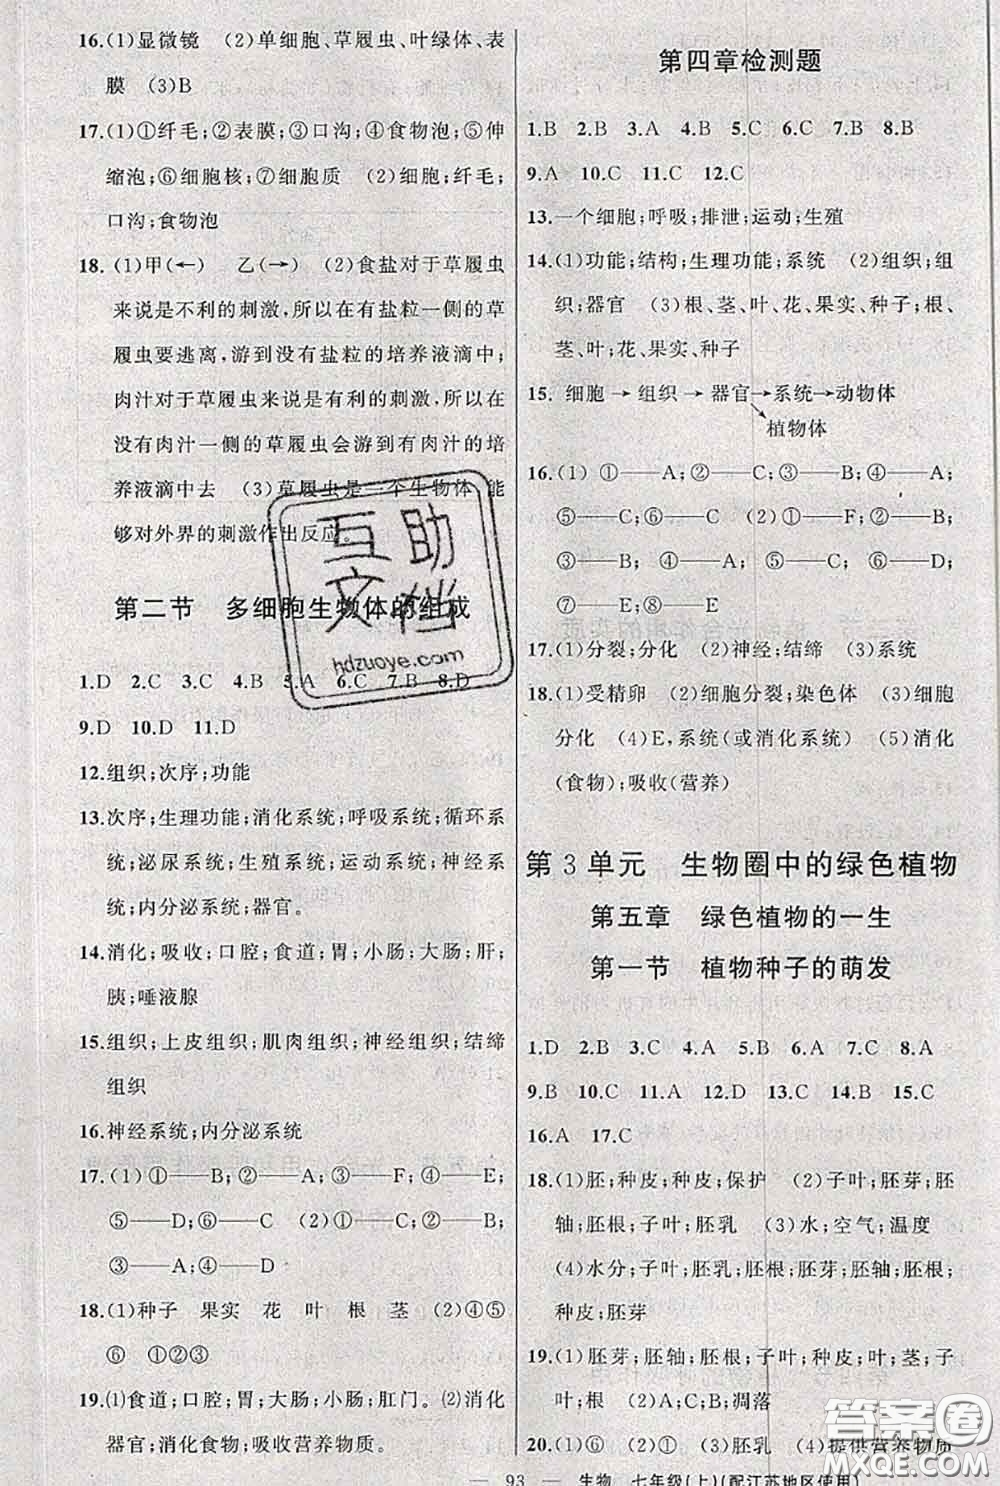 16.(1)显微镜 (2)单细胞、草履虫、叶绿体、表
膜 (3)B
17.(1)①纤毛;②表膜;③口沟;④食物泡;⑤伸
缩泡;⑥细胞核;⑦细胞质 (2)细胞;纤毛;
口沟;食物泡
18.(1)甲(←) 乙(→) (2)食盐对于草履虫
来说是不利的刺激,所以在有盐粒一侧的草
履虫要逃离,游到没有盐粒的培养液滴中;
肉汁对于草履虫来说是有利的刺激,所以在
没有肉汁一侧的草履虫会游到有肉汁的培
养液滴中去 (3)草履虫是一个生物体,能
够对外界的刺激作出反应。
第二节 多细胞生物体的组成
1.D 2.C 3.C 4.B 5.A 6.C 7.B 8.D
9.D 10.D 11.D
12.组织;次序;功能
13.次序;生理功能;消化系统;呼吸系统;循环系
统;泌尿系统;生殖系统;运动系统;神经系
统;内分泌系统;器官。
14.消化;吸收;口腔;食道;胃;小肠;大肠;肝;
胰;唾液腺
15.组织;上皮组织;肌肉组织;神经组织;结缔
组织
16.神经系统;内分泌系统
17.(1)①——B;②——A;③——F;④——E;
⑤——D;⑥——C (2)①——C;②——B;
③——A;④——D
18.(1)种子 果实 花 叶 根 茎 (2)④⑤
⑥ ①②③
19.(1)食道;口腔;胃;大肠;小肠;肛门。(2)消化
器官;消化食物;吸收营养物质。
第四章检测题
1.B 2.B 3.A 4.B 5.C 6.C 7.B 8.B
9.A 10.C 11.C 12.C
13.一个细胞;呼吸;排泄;运动;生殖
14.(1)功能;结构;生理功能;系统 (2)组织;组
织;器官 (3)根、茎、叶、花、果实、种子;根、
茎、叶;花、果实、种子
15. 细胞→组织→器官→系统→动物体
植物体
16.(1) ①——A;②——C;③——B;④——A;
⑤——C;⑥——C (2)①——F;②——B;
③——A;④——C;⑤——D;⑥——D;
⑦——E;⑧——E
17.(1)分裂;分化 (2)神经;结缔 (3)系统
18.(1)受精卵 (2)细胞分裂;染色体 (3)细胞
分化 (4)E,系统(或消化系统) (5)消化
(食物);吸收(营养)
第3单元 生物圈中的绿色植物
第五章 绿色植物的一生
第一节 植物种子的萌发
1.D 2.B 3.C 4.A 5.B 6.A 7.C 8.A
9.B 10.C 11.A 12.D 13.C 14.B 15.C
16.A 17.C
18.(1)胚;种皮;种皮;保护 (2)子叶;胚芽;胚
轴;胚根;子叶;胚乳 (3)水;空气;温度
(4)水分;子叶;胚乳;胚根;胚芽;胚轴;胚根;
种皮;胚芽
19.(1)胚芽;胚轴;胚根;子叶;种皮;叶;茎;子
叶;根 (2)A;C;B;凋落
20.(1)⑥ (2)① (3)胚乳 (4)提供营养物质
— 93 — 生物 七年级(上)(配江苏地区使用)
互助
文档
hdzuoye.com
答案圈
MXQE.COM